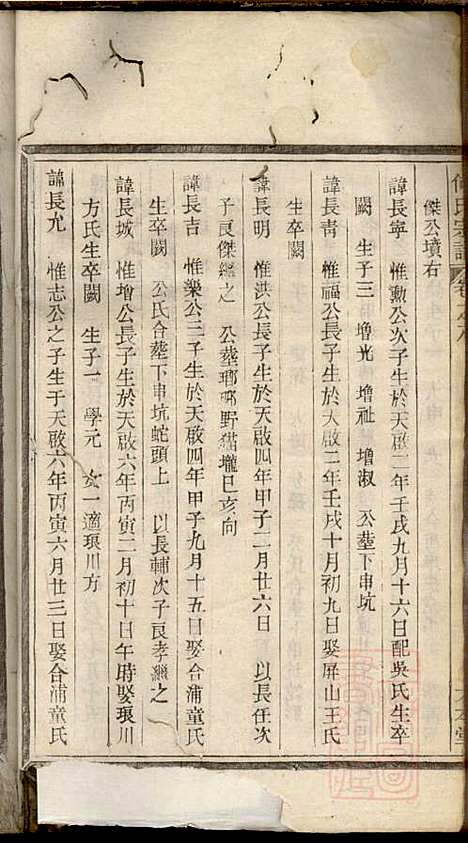 傑公墳右
諱長寧　惟勳公次子生於天啟二年壬戌九月十六日配吳氏生卒
闕　生子三　增光　增祉　增淑　公塟下串坑
諱長青　惟福公長子生於天啟二年壬戌十月初九日娶屏山王氏
生卒闕
諱長明　惟洪公長子生於天啟四年甲子二月廿六日　以長任次
子良傑繼之　公塟瑯琊野猫壠巳亥向
諱長吉　惟樂公三子生於天啟四年甲子九月十五日娶合浦童氏
生卒闕　公氏合塟下串坑蛇頭上　以長輔次子良孝繼之
諱長城　惟增公長子生於天啟六年丙寅二月初十日午時娶琅川
方氏生卒闕　生子一　學元　女一適琅川方
諱長尤　惟志公之子生于天啟六年丙寅六月廿三日娶合浦童氏